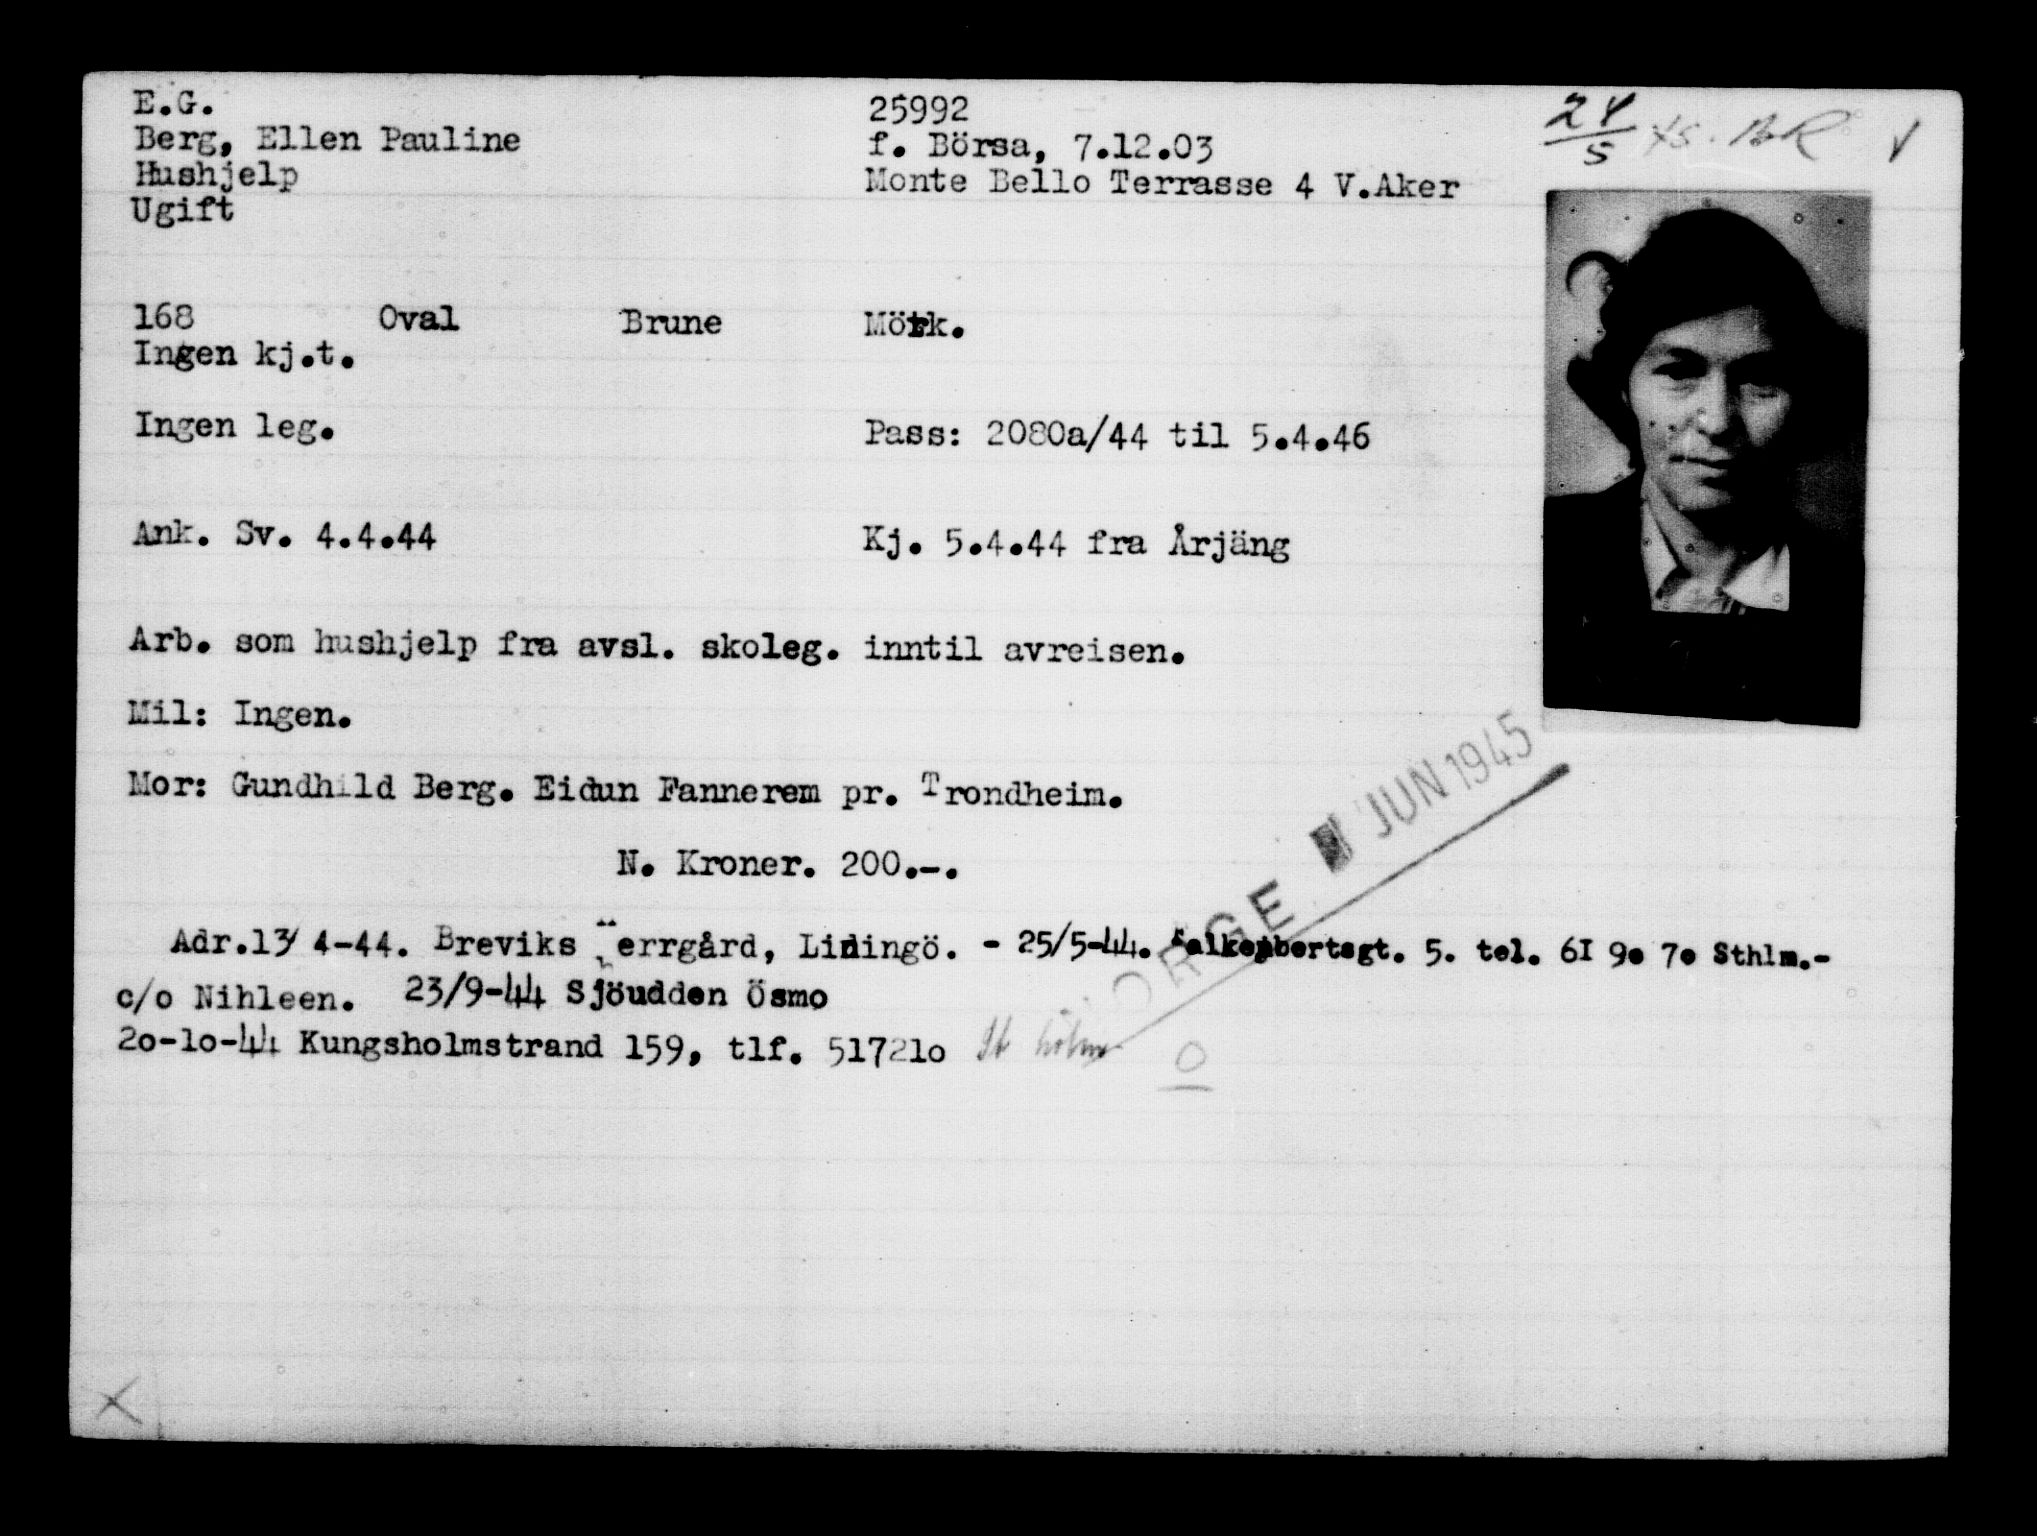 E.G. 25992
Berg, Ellen Pauline f. Börsa, 7.12.03
Hushjelp Monte Bello Terrasse 4 V.Aker
Ugift
24/5 BR
168 Oval Brune Mörk.
Ingen kj.t.
Ingen leg. Pass: 2080a/44 til 5.4.46
Ank. Sv. 4.4.44 Kj. 5.4.44 fra Årjäng
Arb. som hushjelp fra avsl. skoleg. inntil avreisen.
Mil: Ingen.
Mor: Gundhild Berg. Eidun Fannerem pr. Trondheim.
N. Kroner. 200.-.
NORGE JUN 1945
Adr.13/ 4-44. Breviks errgård, Lidingö. - 25/5-44. 5. tel. 61 9o 7o Sthlm.-
c/o Nihleen. 23/9-44 Sjöudden Ösmo
2o-1o-44 Kungsholmstrand 159, tlf. 51721o St holm
O